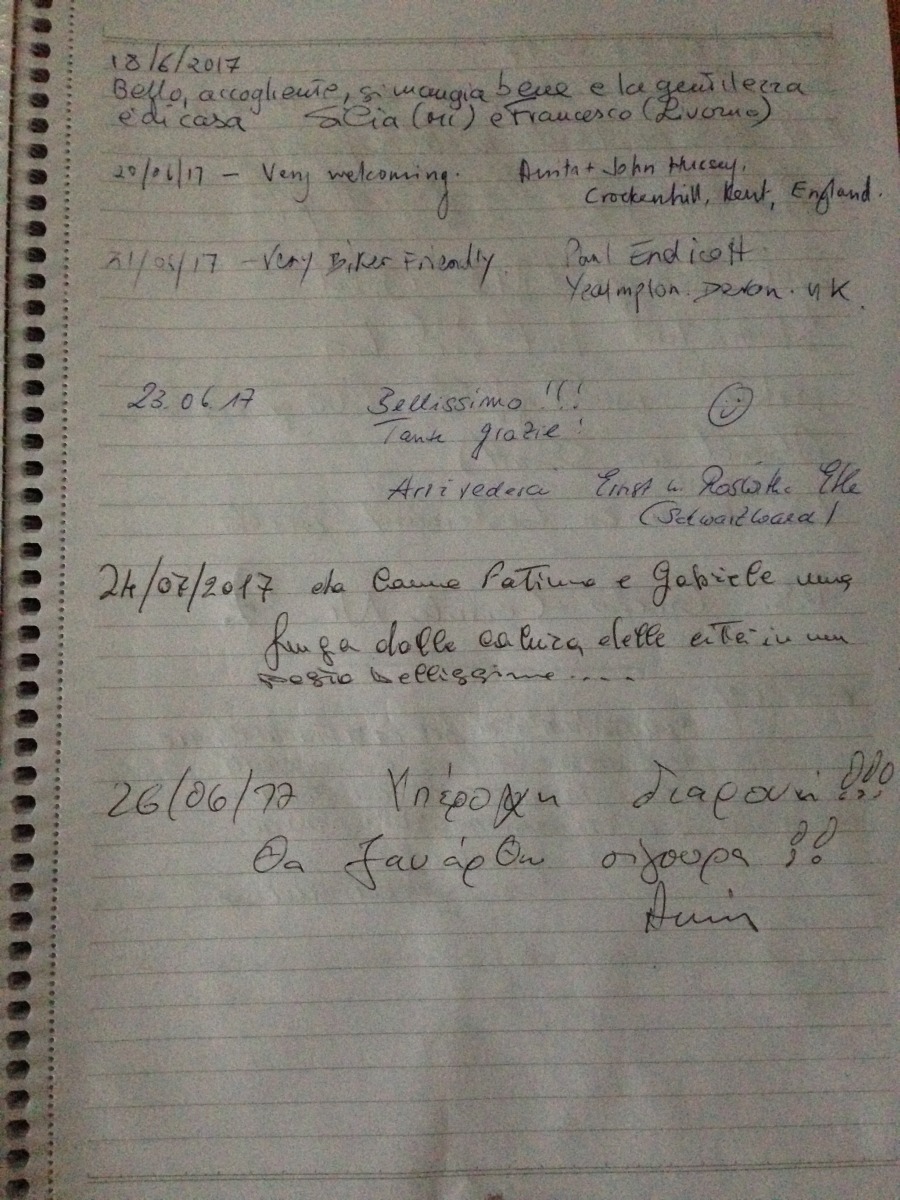 18/6/2017
Bello, accogliente, si mangia bene e la gentilezza
è di casa (MI) e Francesco (Livorno)
20/06/17 - Very welcoming. Anita + John
Crockenhill, Kent, England.
21/06/17 - Very Biker Friendly Paul Endicott
Yealmpton. Devon. UK.
23.06.17 Bellissimo!!!
Tante grazie!
Arrivederci Ernst u.
24/07/2017 da Fatima e Gabriele una
fuga dalla calura delle città in un
posto bellissimo....
26/06/17 Υπέροχη διαμονή!!!
Θα ξανάρθω σίγουρα!!